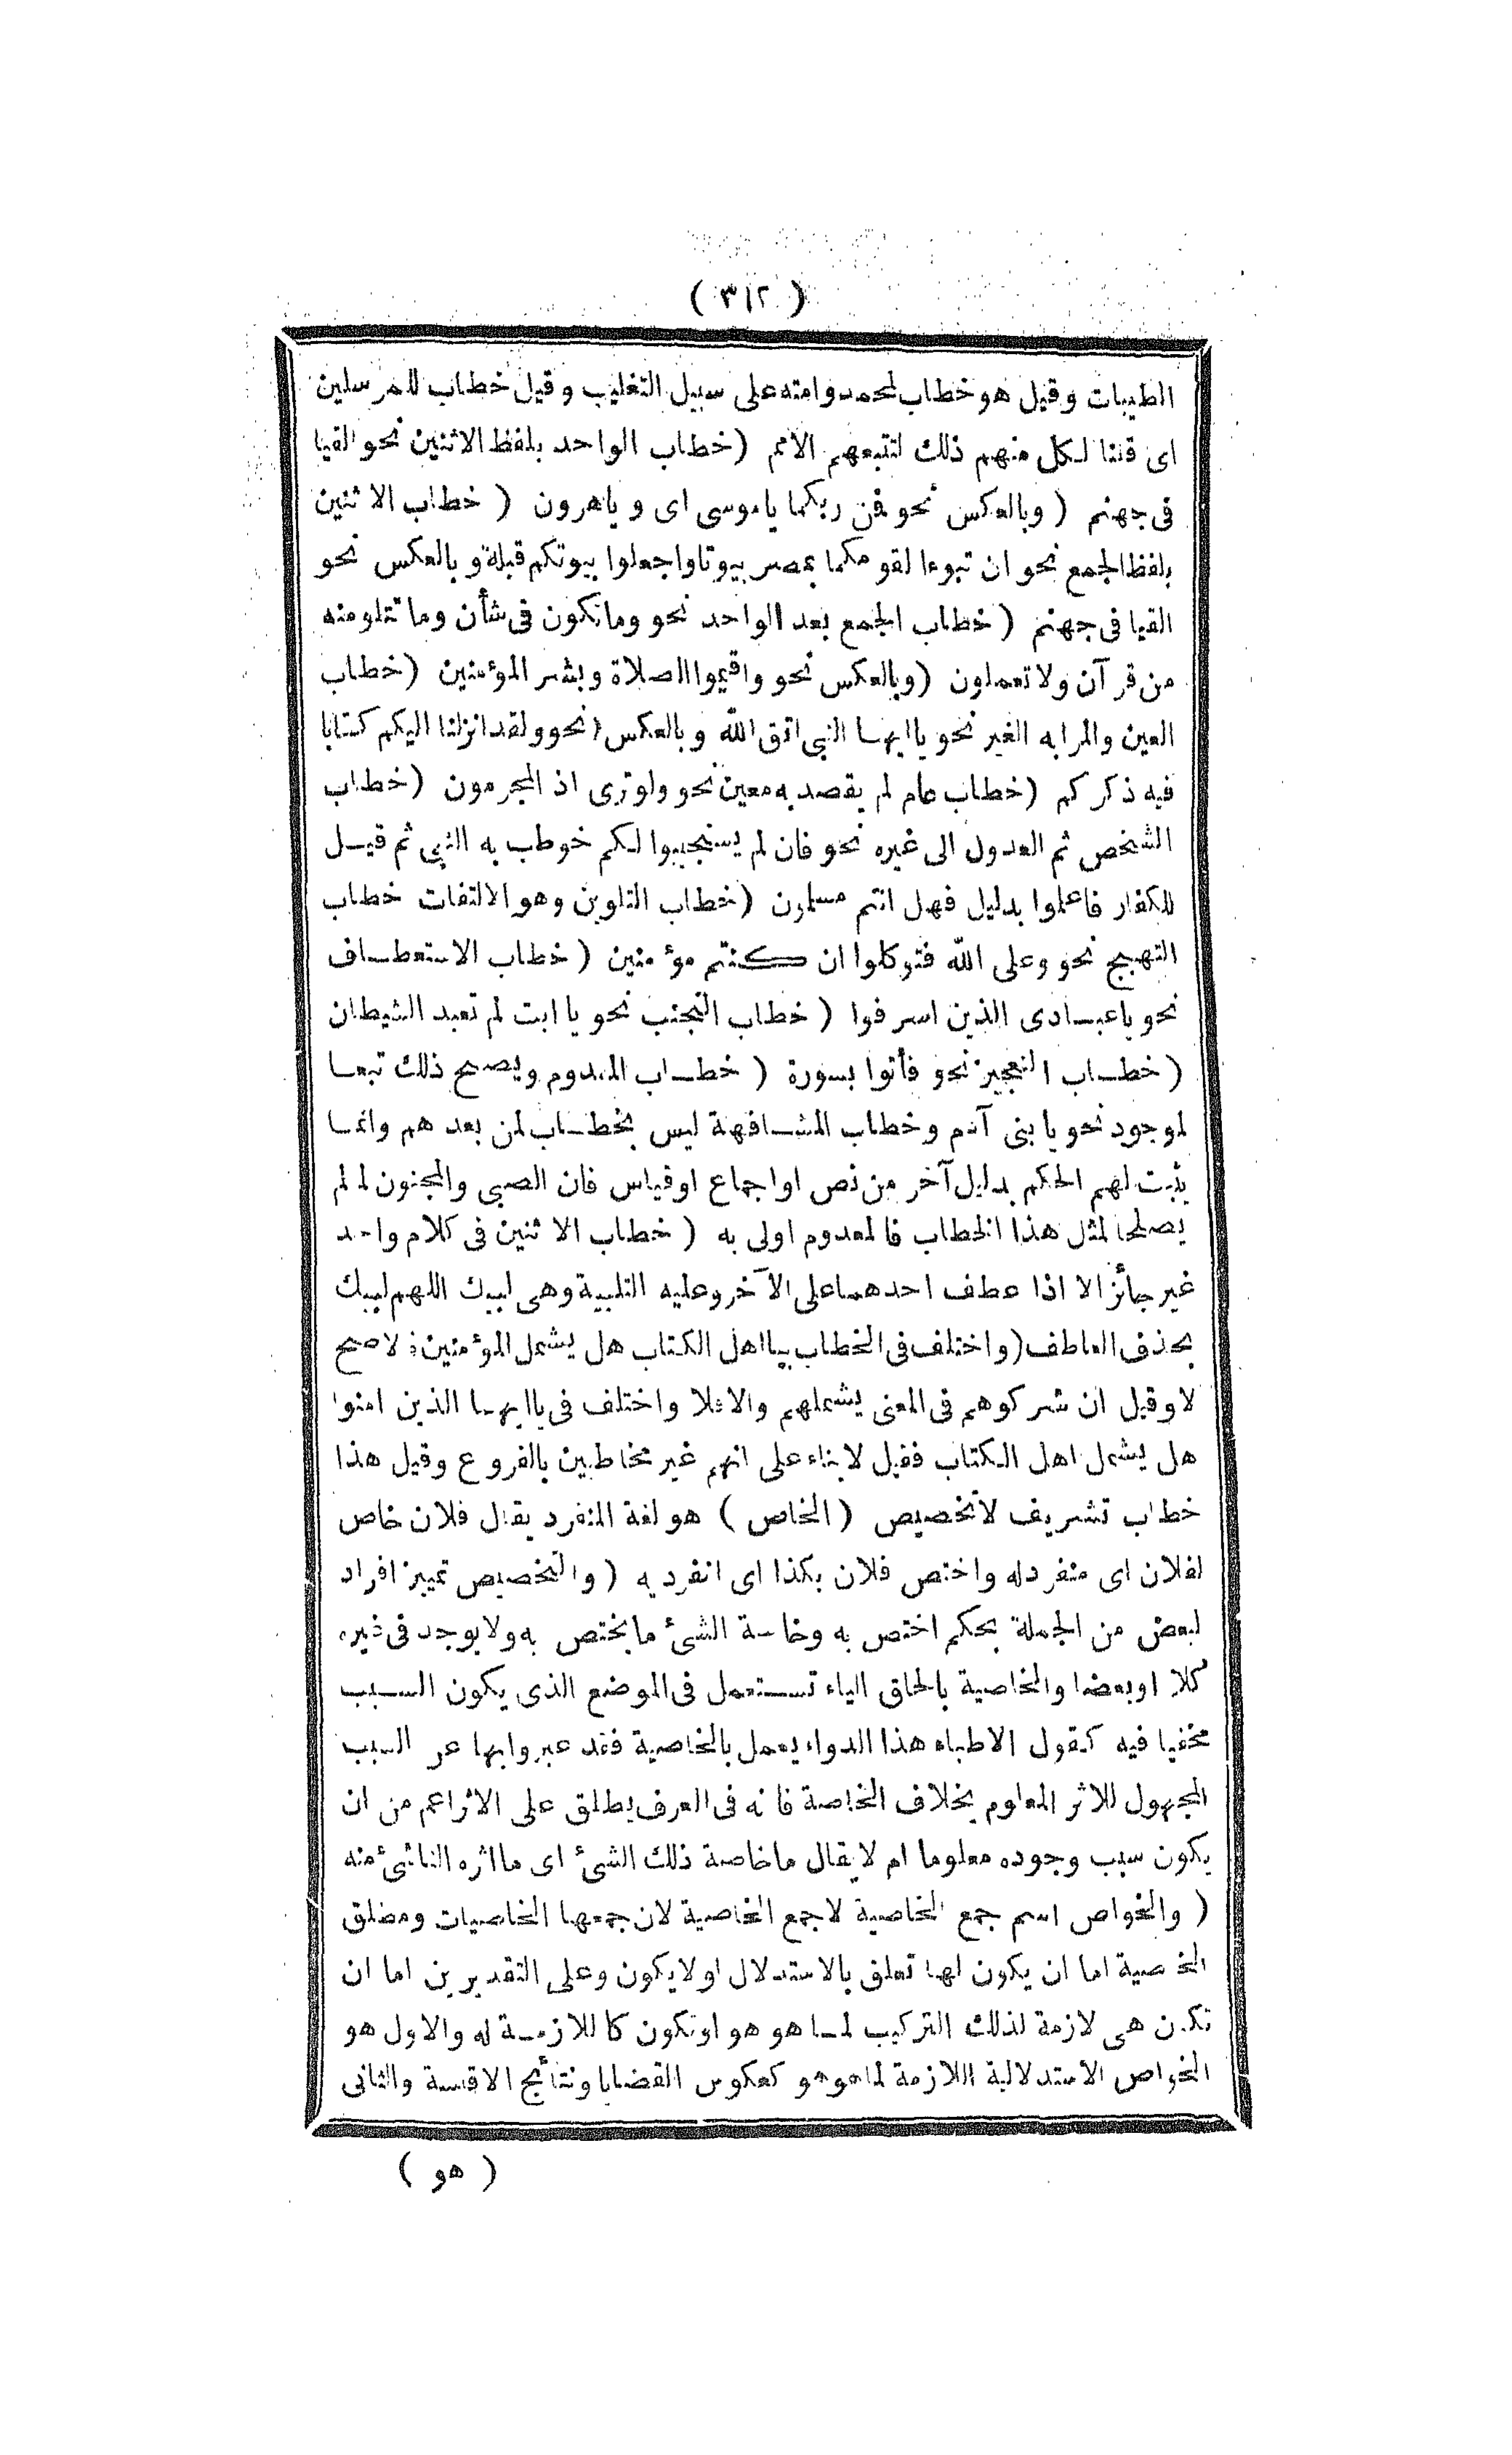 ( ٣١٢ )
الطيبات وقيل هو خطاب لمحمد وامته على سبيل التغليب وقيل خطاب للمرسلين
اى قلنا لكل منهم ذلك لتتبعهم الامم (خطاب الواحد بلفظ الاثنين نحو القيا
فى جهنم (وبالعكس نحو فمن ربكما ياموسى اى وياهرون (خطاب الاثنين
بلفظ الجمع نحو ان تبوءا لقومكما بمصر بيوتا واجعلوا بيوتكم قبلة وبالعكس نحو
القيا فى جهنم (خطاب الجمع بعد الواحد نحو وماتكون فى شأن وما تتلو منه
من قرآن ولا تعملون (وبالعكس نحو واقيموا الصلاة وبشر المؤمنين (خطاب
العين والمرا به الغير نحو يا ايها النبى اتق الله وبالعكس (نحو ولقد انزلنا اليكم كتابا
فيه ذكركم (خطاب عام لم يقصد به معين نحو ولو ترى اذ المجرمون (خطاب
الشخص ثم العدول الى غيره نحو فان لم يستجيبوا لكم خوطب به النبى ثم قيل
للكفار فاعلموا بدليل فهل انتم مسلمون (خطاب التلوين وهو الالتفات خطاب
التهيج نحو وعلى الله فتوكلوا ان كنتم مؤمنين (خطاب الاستعطاف
نحو ياعبادى الذين اسرفوا (خطاب التجنب نحو يا ابت لم تعبد الشيطان
(خطاب التعجيز نحو فأتوا بسورة (خطاب المعدوم ويصح ذلك تبعا
لموجود نحو يا بنى آدم وخطاب المشافهة ليس بخطاب لمن بعدهم وانما
يثبت لهم الحكم بدليل آخر من نص او اجماع او قياس فان الصبى والمجنون لما لم
يصلحا لمثل هذا الخطاب فالمعدوم اولى به (خطاب الاثنين فى كلام واحد
غير جائز الا اذا عطف احدهما على الآخر وعليه التلبية وهى لبيك اللهم لبيك
بحذف العاطف (واختلف فى الخطاب بيا اهل الكتاب هل يشمل المؤمنين فلاصح
لا وقيل ان شركوهم فى المعنى يشملهم والا فلا واختلف فى ياايها الذين امنوا
هل يشمل اهل الكتاب فقيل لا بناء على انهم غير مخاطبين بالفروع وقيل هذا
خطاب تشريف لاتخصيص (الخاص) هو لغة المنفرد يقال فلان خاص
لفلان اى منفرد له واختص فلان بكذا اى انفرد به (والتخصيص تمييز افراد
لبعض من الجملة بحكم اختص به وخاصة الشئ مايختص به ولا يوجد فى غيره
كلا او بعضا والخاصية بالحاق الياء تستعمل فى الموضع الذى يكون السبب
مخفيا فيه كقول الاطباء هذا الدواء يعمل بالخاصية فقد عبروا بها عن السبب
المجهول للاثر المعلوم بخلاف الخاصة فانه فى العرف يطلق على الاثر اعم من ان
يكون سبب وجوده معلوما ام لا يقال ماخاصة ذلك الشئ اى ما اثره الناشئ منه
(والخواص اسم جمع الخاصية لا جمع الخاصية لان جمعها الخاصيات ومطلق
الخاصية اما ان يكون لها تعلق بالاستدلال او لا يكون وعلى التقديرين اما ان
تكون هى لازمة لذلك التركيب لما هو هو او تكون كاللازمة له والاول هو
الخواص الاستدلالية اللازمة لما هو هو كعكوس القضايا ونتائج الاقيسة والثانى
( هو )